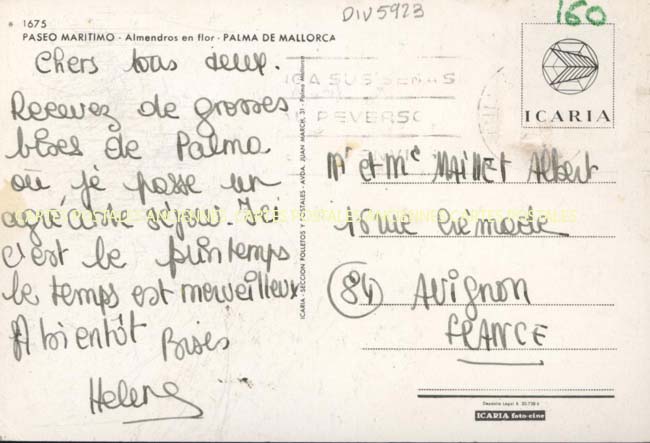 DIV5923
160
1675
PASEO MARITIMO - Almendros en flor - PALMA DE MALLORCA
Chers tous deux.
Recevez de grosses
bises de Palma
où je passe un
agréable séjour. Ici
c'est le printemps
le temps est merveilleux
A bientôt
Bises
Helene
ICARIA - SECCION FOLLETOS Y POSTALES - AVDA. JUAN MARCH, 31 - Palma Mallorca
ICARIA
Mr et Mme MAILLET Albert
15 rue
84 AVIGNON
FRANCE
ICARIA foto-cine
CARTES POSTALES ANCIENNES CARTES POSTALES ANCIENNES CARTES POSTALES